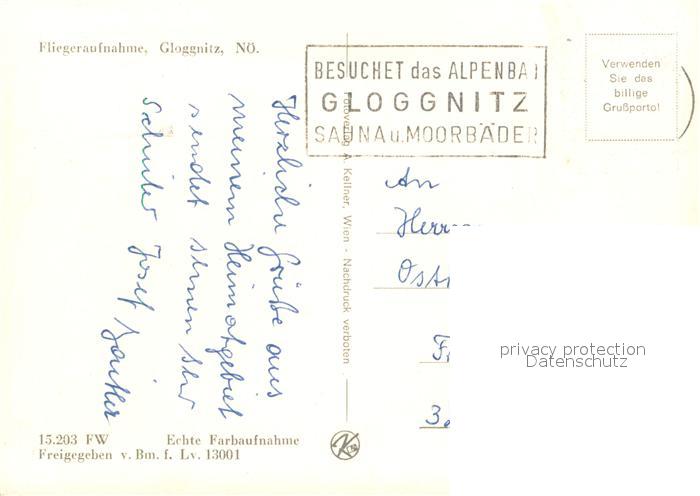 Fliegeraufnahme, Gloggnitz, NÖ.
BESUCHET das ALPENBA
GLOGGNITZ
SAUNA u. MOORBÄDER
Verwenden
Sie das
billige
Grußporto!
Herzliche Grüße aus
meinem Heimatgebiet
sendet
Schüler Josef
Fotoverlag A. Kellner, Wien - Nachdruck verboten
An
Herr
Ost
privacy protection
Datenschutz
15.203 FW Echte Farbaufnahme
Freigegeben v. Bm. f. Lv. 13001